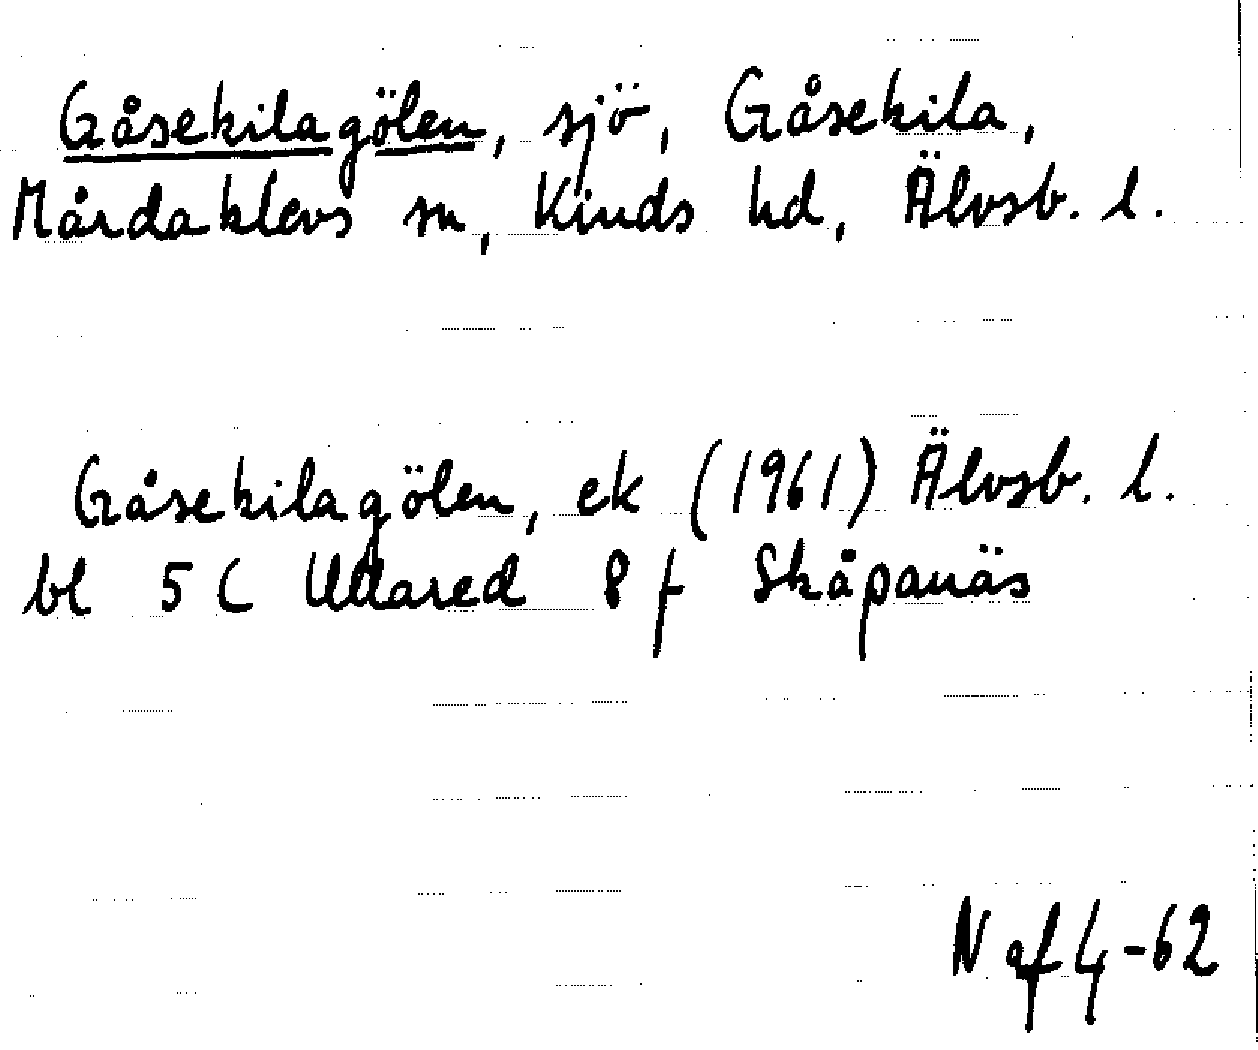 Gåsekilagölen, sjö, Gåsekila,
Mårdaklevs sn, Kinds hd, Älvsb. l.
Gåsekilagölen, ek (1961) Älvsb. l.
bl 5 C Ullared 8 f Skåpanäs
N af 4-62